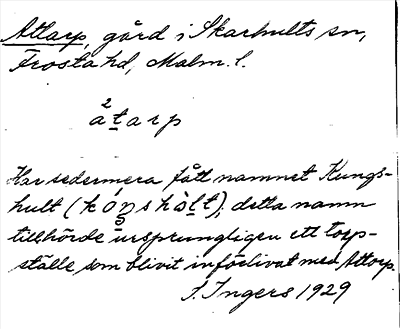 Attarp, gård i Skarhults sn,
Frosta hd, Malm. l.
2
åt̲arp
Har sedermera fått namnet Kungs-
hult (kóŋshòlt̲), detta namn
tillhörde ursprungligen ett torp-
ställe som blivit införlivat med Attarp.
F. Ingers 1929